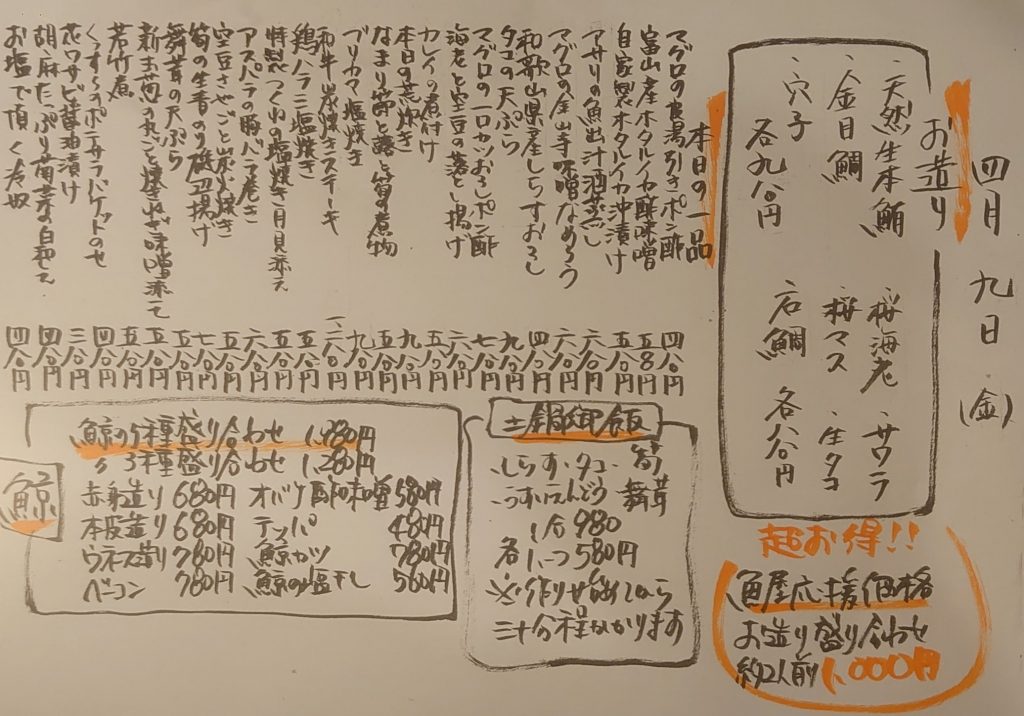 四月九日(金)
お造り
・天然生本鮪 ・桜海老 ・サワラ
・金目鯛 ・桜マス ・生タコ
・穴子 各九八〇円 ・石鯛 各八八〇円
本日の一品
マグロの 湯引きポン酢 四八〇円
富山産ホタルイカ酢味噌 五八〇円
自家製ホタルイカ沖漬け 五八〇円
アサリの魚出汁酒蒸し 六八〇円
マグロの金山寺味噌なめろう 六八〇円
和歌山県産しらすおろし 四八〇円
タコの天ぷら 九八〇円
マグロの一口カツおろしポン酢 七八〇円
海老と空豆の落とし揚げ 六八〇円
カレイの煮付け 五八〇円
本日の荒炊き 九八〇円
なまり節と蕗と筍の煮物 五八〇円
ブリカマ塩焼き 九八〇円
和牛炭焼きステーキ
鶏ハラミ塩焼き 五八〇円
特製つくねの塩焼き月見添え 五八〇円
アスパラの豚バラ巻き 六八〇円
空豆さやごと炭火焼き 五八〇円
筍の生青のり磯辺揚げ 七八〇円
舞茸の天ぷら 五八〇円
新玉葱の丸ごと焼き 味噌添えて 五八〇円
若竹煮 五八〇円
ポテサラバケットのせ 四八〇円
花ワサビ醤油漬け 三八〇円
胡麻たっぷり菊菜の白和え 四八〇円
お塩で頂く冷奴 四八〇円
超お得!!
魚屋応援価格
お造り盛り合わせ
約2人前 1,000円
土鍋御飯
・しらす・タコ・筍
・うすいえんどう・舞茸
1合 980
各1、つ 580円
※作り始めてから
三十分程かかります
鯨
鯨の5種盛り合わせ 1,980円
〃 3種盛り合わせ 1,280円
赤身造り 680円 オバケ酢味噌 580円
本皮造り 680円 テッパ 480円
ウネス造り 780円 鯨カツ 780円
ベーコン 780円 鯨の塩干し 560円